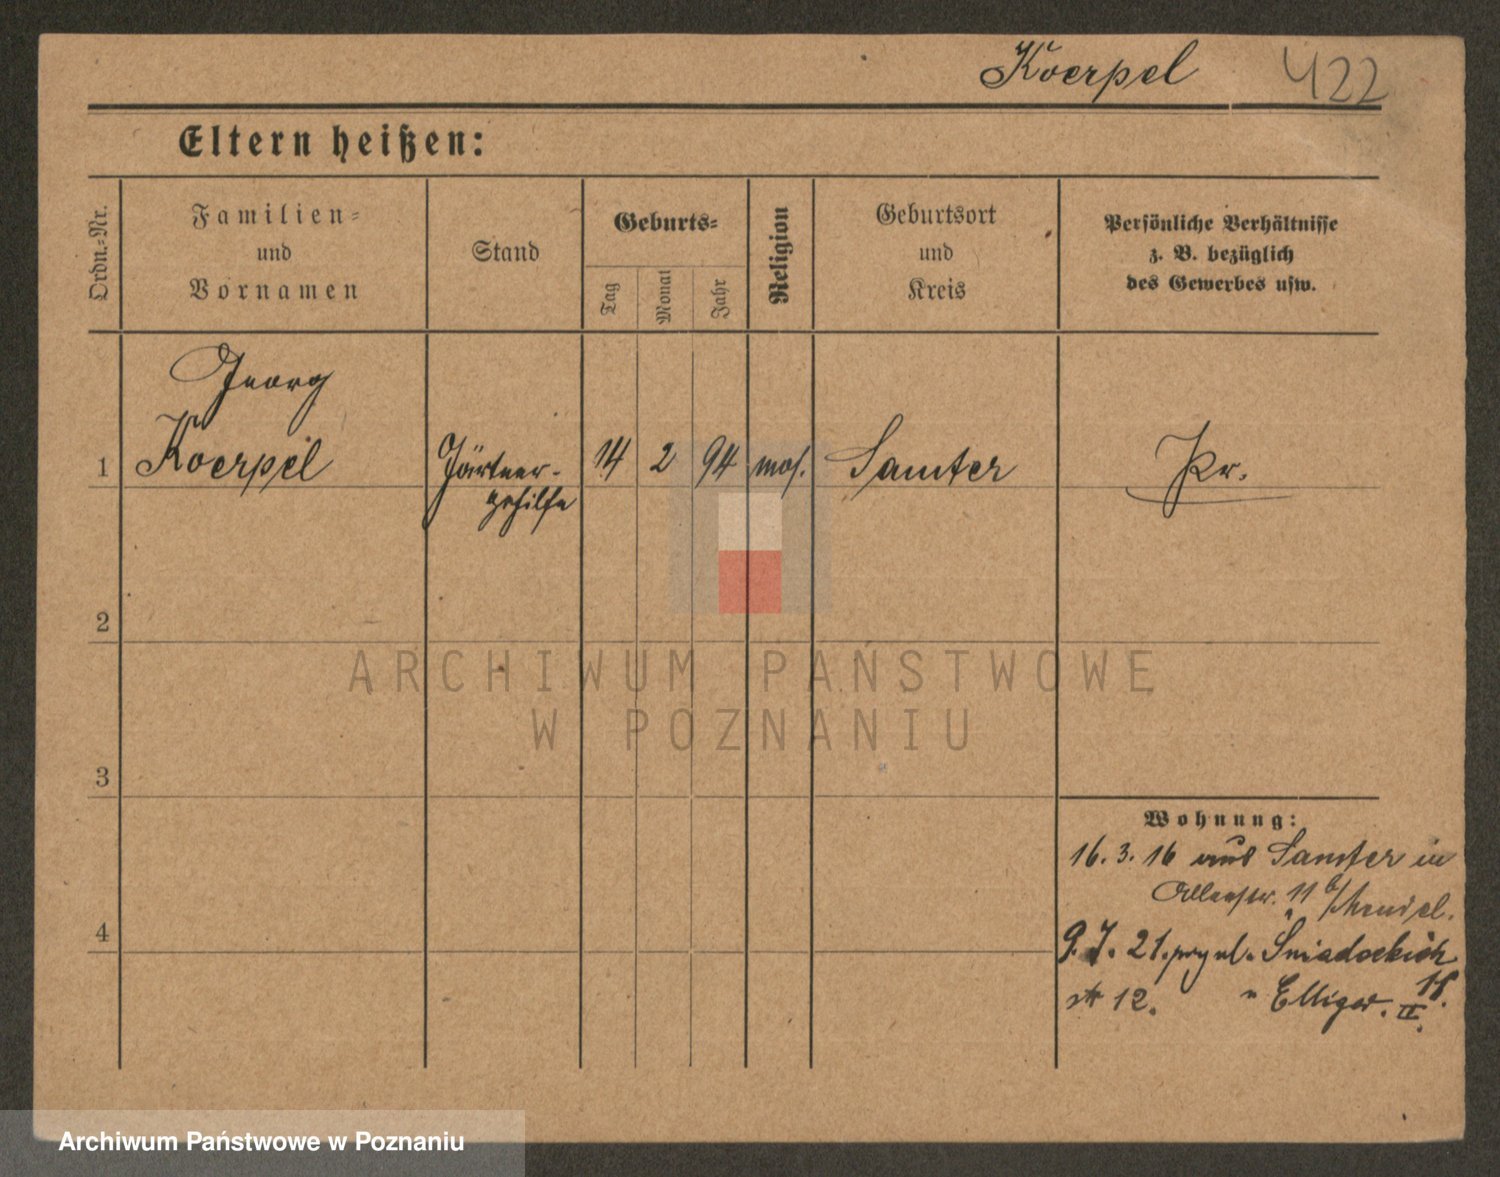 Koerpel 422
Eltern heißen:
Ordn.=Nr.
Familien=
und
Vornamen
Stand
Geburts=
Tag
Monat
Jahr
Religion
Geburtsort
und
Kreis
Persönliche Verhältnisse
z. B. bezüglich
des Gewerbes usw.
Georg
1 Koerpel Gärtner- 14 2 94 mos. Samter Pr.
gehilfe
2
3
4
Wohnung:
16. 3. 16 aus Samter in
11 b/
9. 7. 21. Sniadeckich
12. " 11.
II.
ARCHIWUM PAŃSTWOWE
W POZNANIU
Archiwum Państwowe w Poznaniu